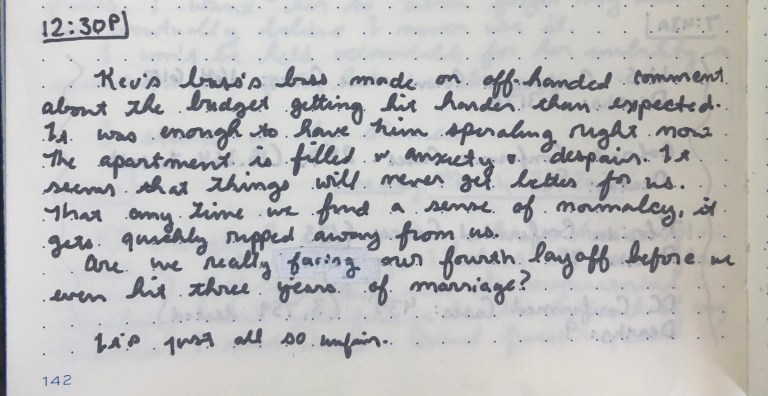 12:30P
Kev's boss's boss made an off-handed comment
about the budget getting hit harder than expected.
It was enough to have him speraling right now.
The apartment is filled w anxiety & despair. It
seems that things will never get better for us.
That any time we find a sense of normalcy, it
gets quickly ripped away from us.
Are we really facing our fourth layoff before we
even hit three years of marriage?
It's just all so unfair.
142